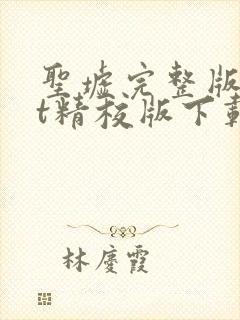 聖墟完整版
t精校版下載
林慶霞